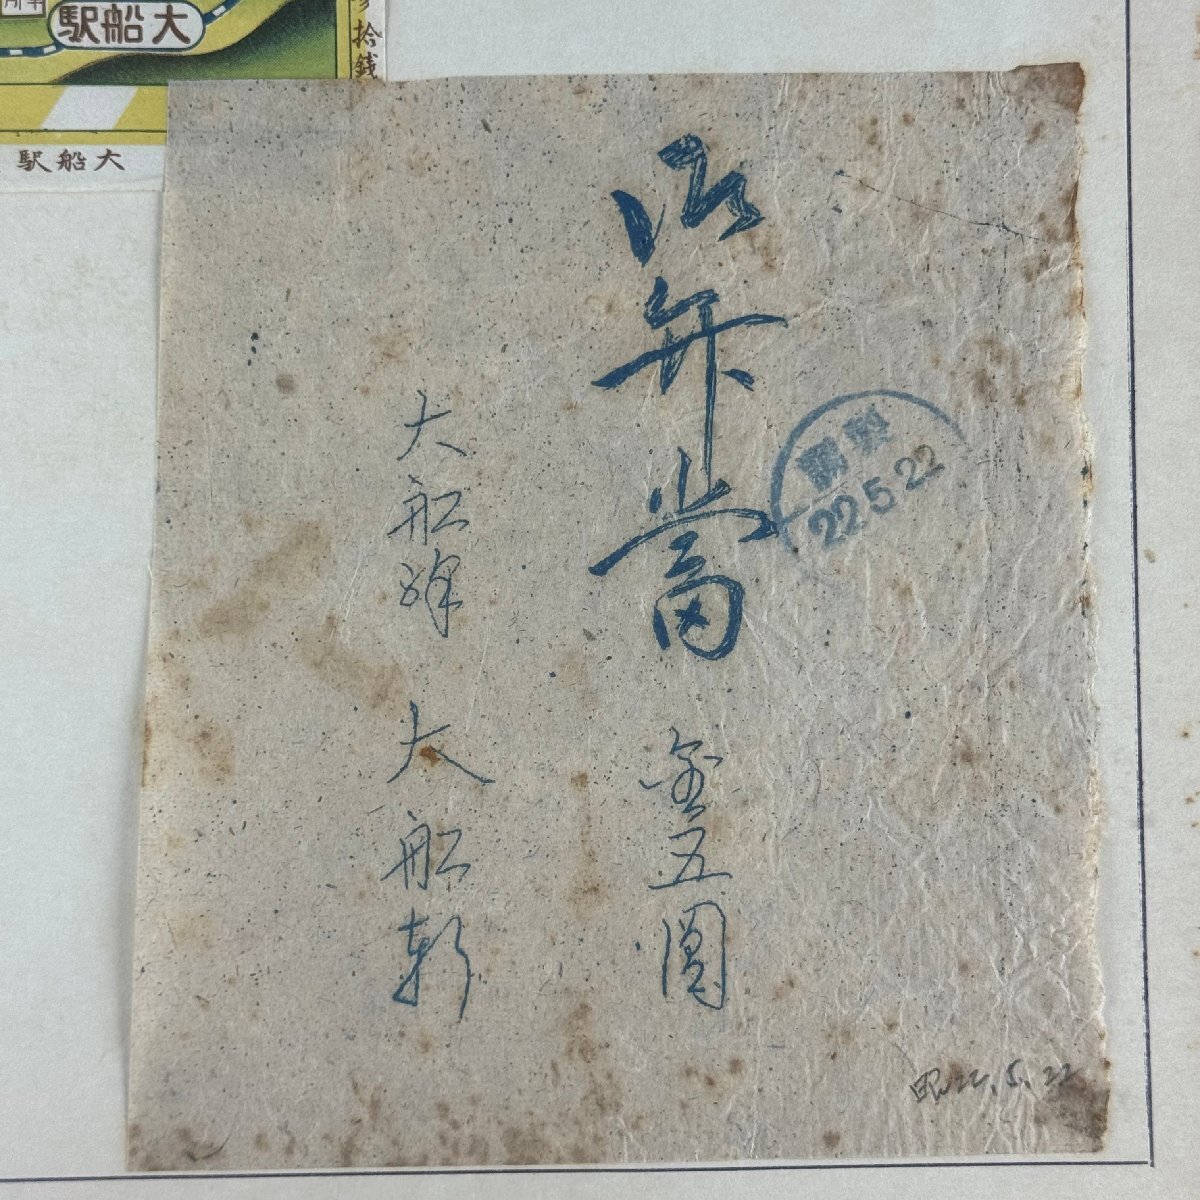 大船駅
拾銭
大船駅
御弁當 金五圓
調製
22.5.22
大船駅 大船軒
昭22.5.22